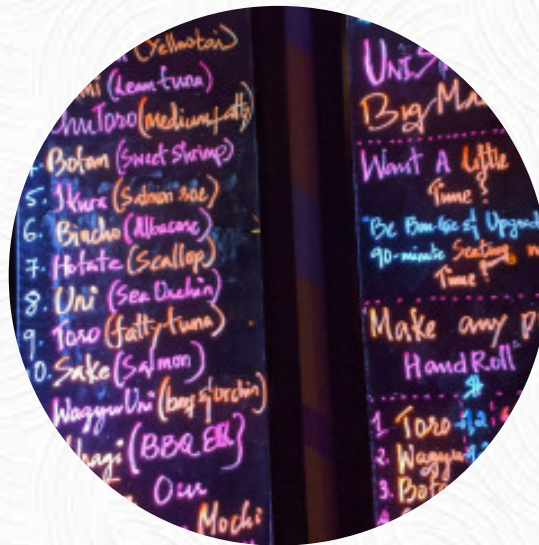 (Yellowtail)
(Lean tuna)
ChuToro (medium fatty)
Botan (Sweet Shrimp)
5. Ikura (Salmon roe)
6. Bincho (Albacore)
7. Hotate (Scallop)
8. Uni (Sea Urchin)
9. Toro (fatty tuna)
0. Sake (Salmon)
Wagyu Uni (beef & urchin)
(BBQ EEL)
Our
Mochi
UNI
Big
Want A Little
Time?
Be Bougie & Upgrade
90-minute Seating
Time?
Make any
Hand Roll"
1 Toro
2. Wagyu
3.